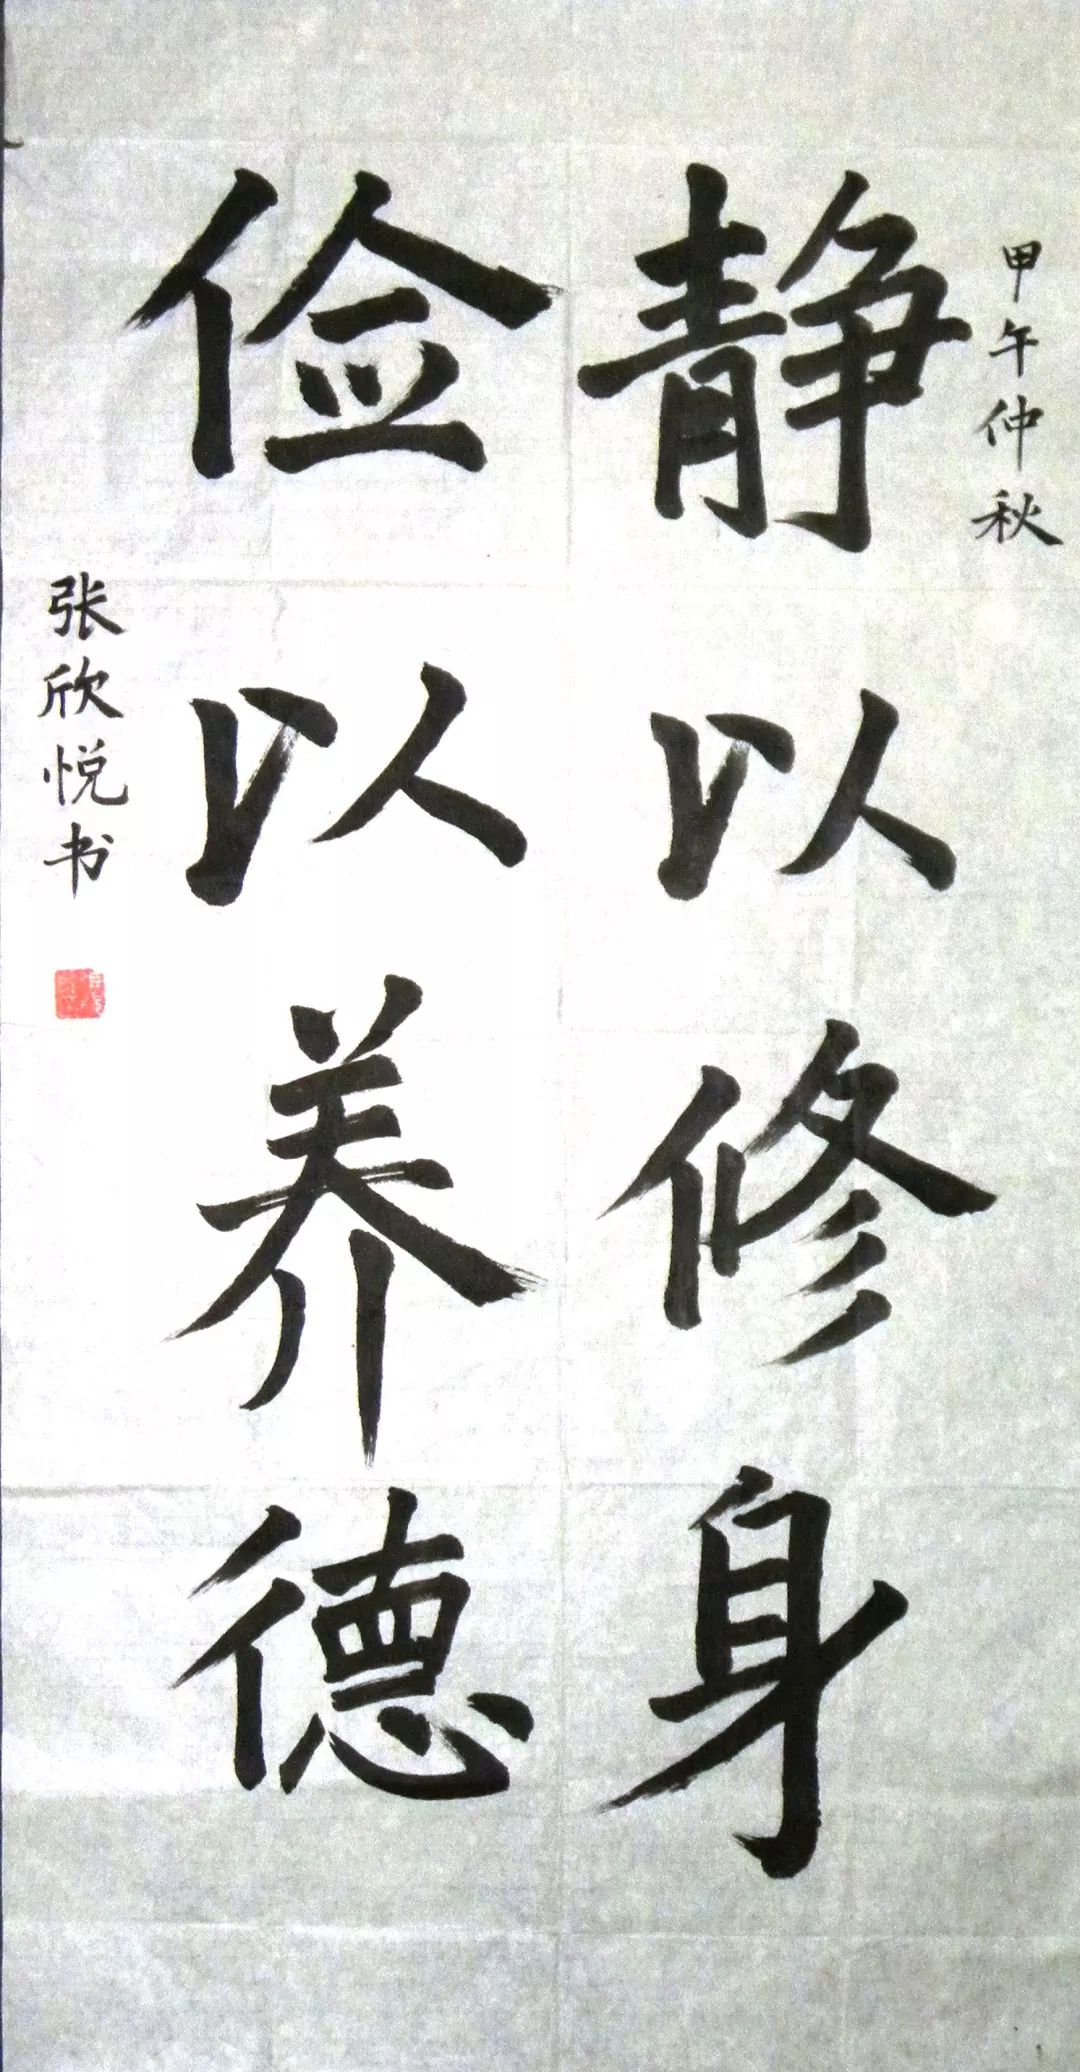 甲午仲秋
静以修身
俭以养德
张欣悦书